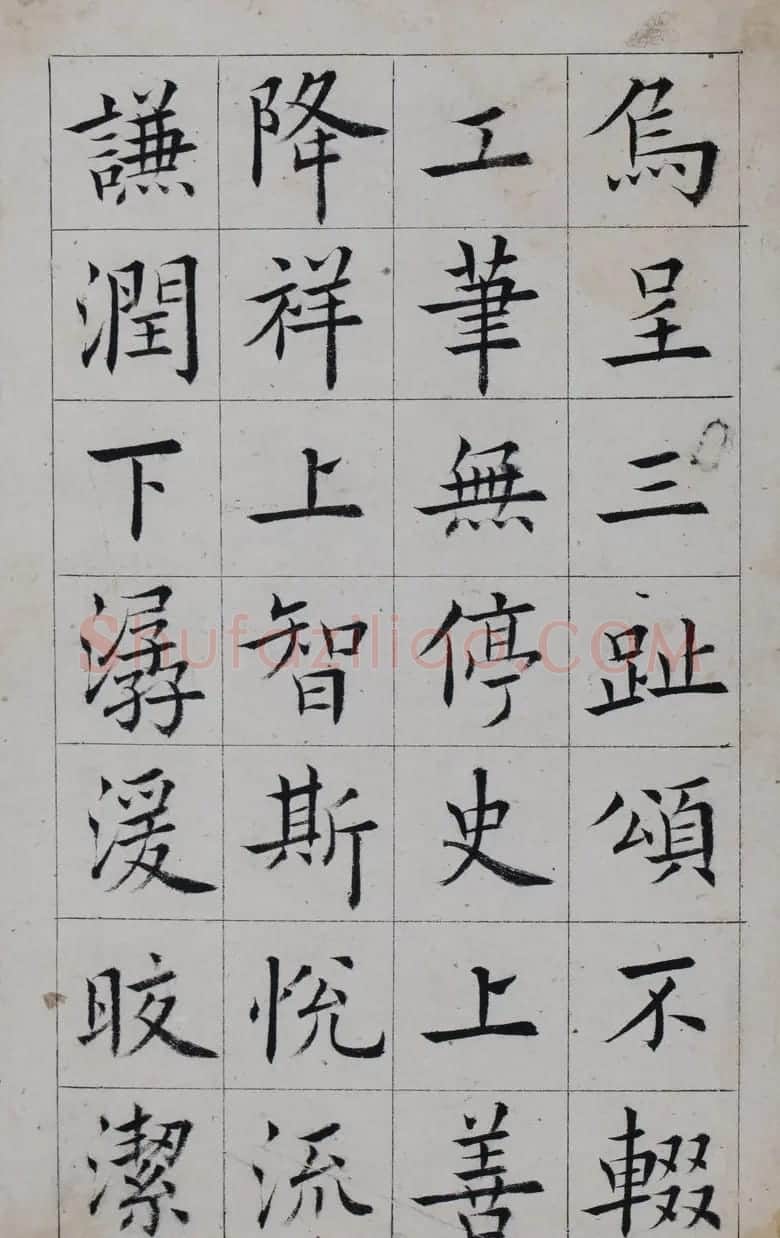 烏呈三趾頌不輟
工筆無停史上善
降祥上智斯悅流
謙潤下潺湲晈潔
Shufaziliao.COM